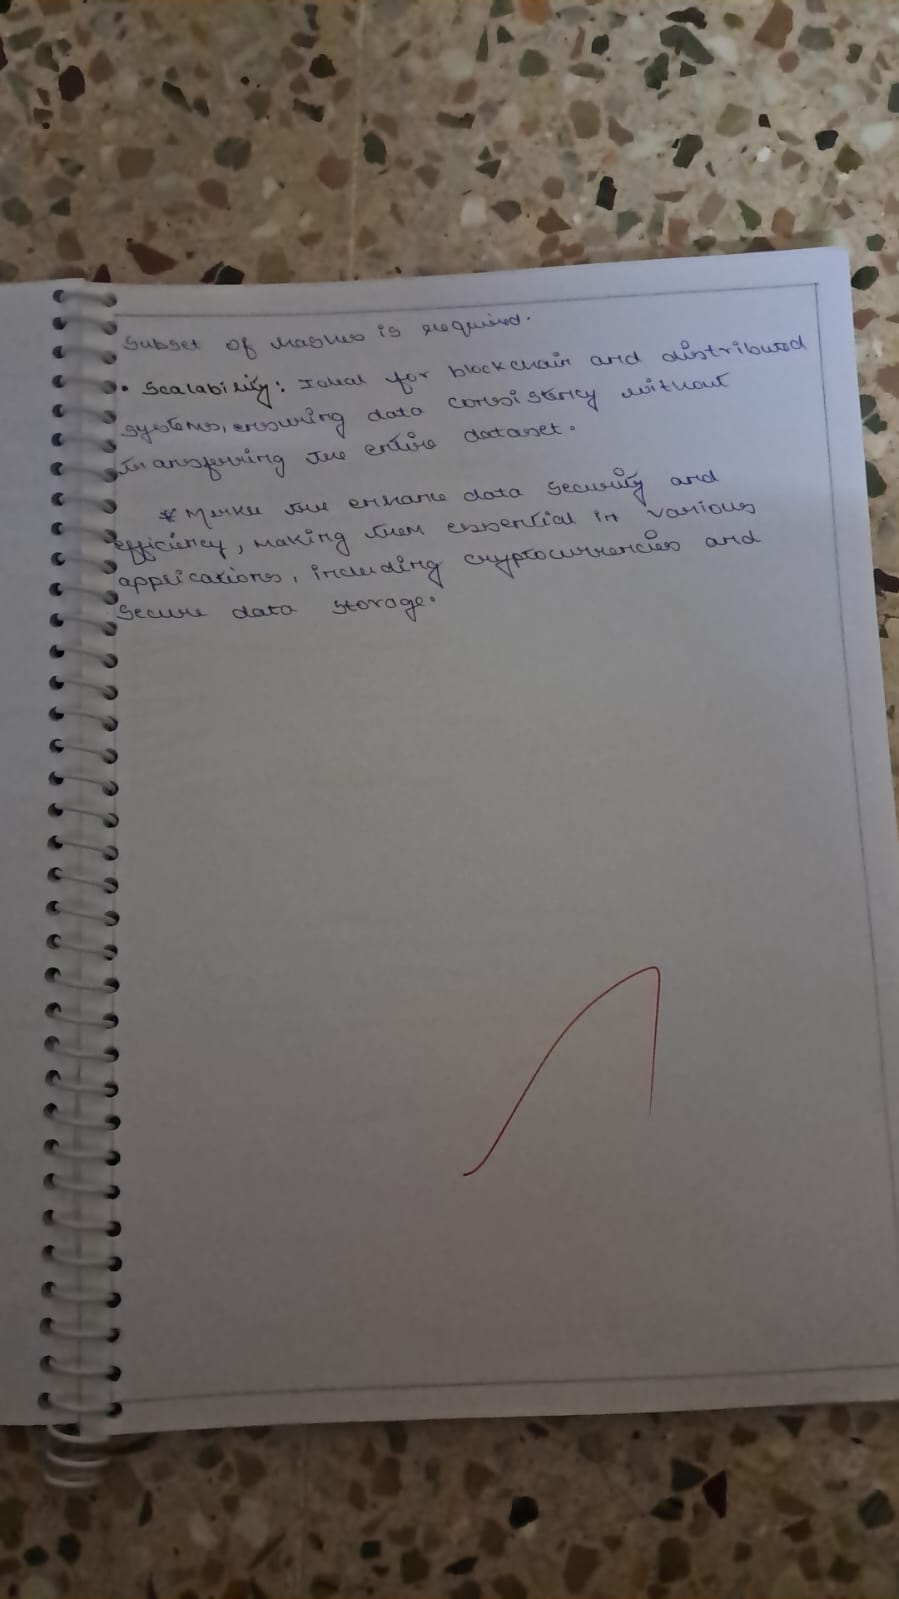 Subset of hashes is required.
• Scalability: Ideal for blockchain and distributed
systems, ensuring data consistency without
transferring the entire dataset.
* Merkle tree enhance data security and
efficiency, making them essential in various
applications, including cryptocurrencies and
secure data storage.